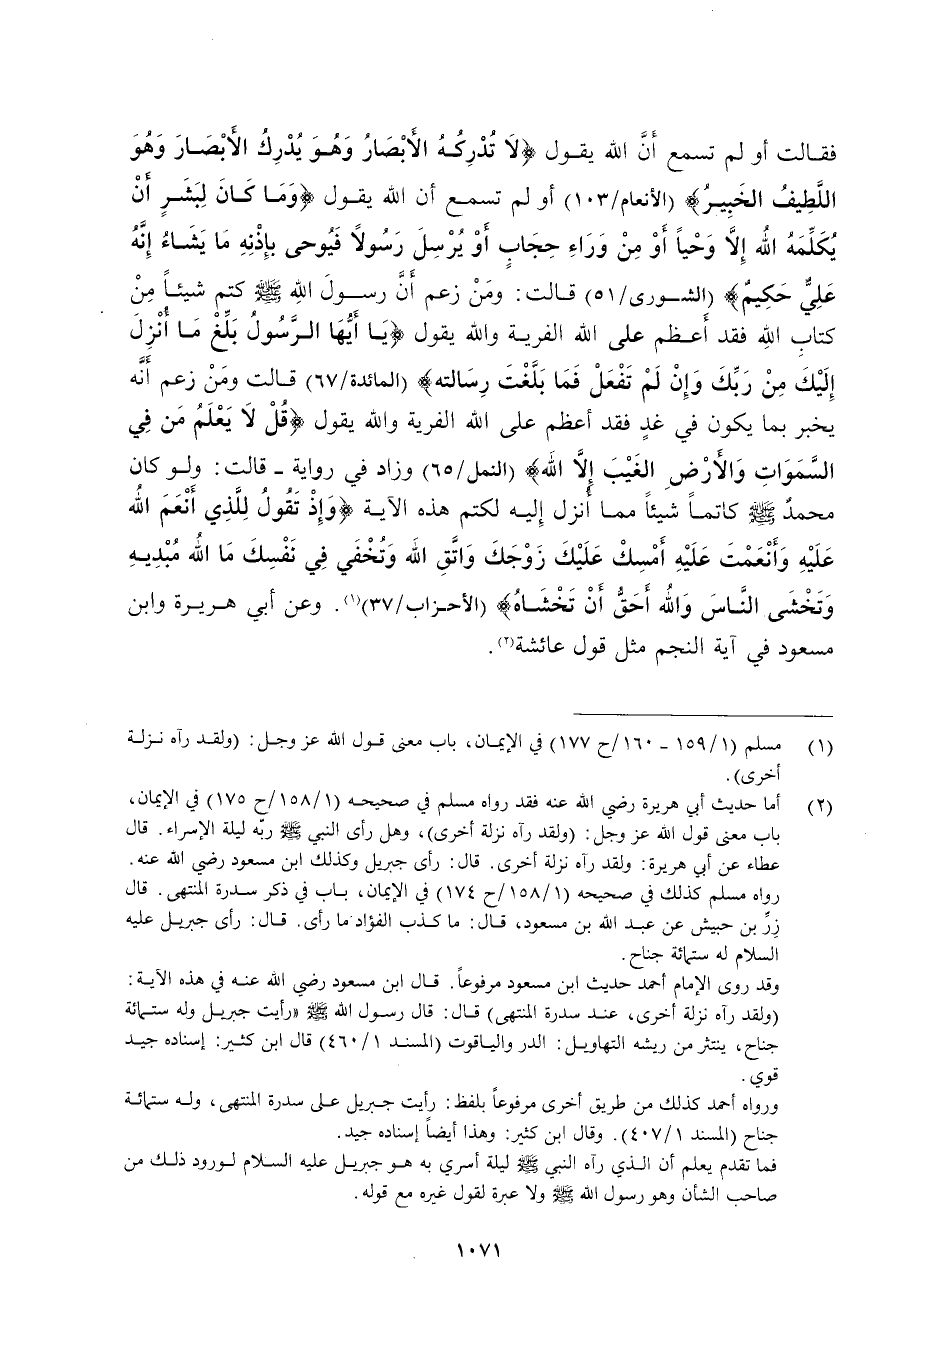 فقالت أو لم تسمع أَنَّ الله يقول ﴿لَا تُدْرِكُهُ الأَبْصَارُ وَهُوَ يُدْرِكُ الأَبْصَارَ وَهُوَ
اللَّطِيفُ الخَبِيرُ﴾ (الأنعام/١٠٣) أو لم تسمع أن الله يقول ﴿وَمَا كَانَ لِبَشَرٍ أَنْ
يُكَلِّمَهُ الله إِلَّا وَحْياً أَوْ مِنْ وَرَاءِ حِجَابٍ أَوْ يُرْسِلَ رَسُولاً فَيُوحى بِإِذْنِهِ مَا يَشَاءُ إِنَّهُ
عَلِيٌّ حَكِيمٌ﴾ (الشورى/٥١) قالت: ومَنْ زعم أَنَّ رسول الله ﷺ كتم شيئاً مِنْ
كتابِ الله فقد أَعظم على الله الفرية والله يقول ﴿يَا أَيُّهَا الرَّسُولُ بَلِّغْ مَا أُنْزِلَ
إِلَيْكَ مِنْ رَبِّكَ وَإِنْ لَمْ تَفْعَلْ فَمَا بَلَّغْتَ رِسَالته﴾ (المائدة/٦٧) قالت ومَنْ زعم أَنَّه
يخبر بما يكون في غدٍ فقد أعظم على الله الفرية والله يقول ﴿قُلْ لَا يَعْلَمُ مَن فِي
السَّمَوَاتِ وَالأَرْضِ الغَيْبَ إِلَّا الله﴾ (النمل/٦٥) وزاد في رواية ـ قالت: ولو كان
محمدٌ ﷺ كاتماً شيئاً مما أُنزل إليه لكتم هذه الآية ﴿وَإِذْ تَقُولُ لِلَّذِي أَنْعَمَ الله
عَلَيْهِ وَأَنْعَمْتَ عَلَيْهِ أَمْسِكْ عَلَيْكَ زَوْجَكَ وَاتَّقِ الله وَتُخْفِي فِي نَفْسِكَ مَا الله مُبْدِيهِ
وَتَخْشَى النَّاسَ وَالله أَحَقُّ أَنْ تَخْشَاهُ﴾ (الأحزاب/٣٧)(١). وعن أبي هريرة وابن
مسعود في آية النجم مثل قول عائشة(٢).
(١) مسلم (١/١٥٩ ـ ١٦٠/ح ١٧٧) في الإيمان، باب معنى قول الله عز وجل: (ولقد رآه نزلة
أخرى).
(٢) أما حديث أبي هريرة رضي الله عنه فقد رواه مسلم في صحيحه (١/١٥٨/ح ١٧٥) في الإيمان،
باب معنى قول الله عز وجل: (ولقد رآه نزلة أخرى)، وهل رأى النبي ﷺ ربّه ليلة الإسراء. قال
عطاء عن أبي هريرة: ولقد رآه نزلة أخرى. قال: رأى جبريل وكذلك ابن مسعود رضي الله عنه.
رواه مسلم كذلك في صحيحه (١/١٥٨/ح ١٧٤) في الإيمان، باب في ذكر سدرة المنتهى. قال
زِرِّ بن حبيش عن عبد الله بن مسعود، قال: ما كذب الفؤاد ما رأى. قال: رأى جبريل عليه
السلام له ستمائة جناح.
وقد روى الإمام أحمد حديث ابن مسعود مرفوعاً. قال ابن مسعود رضي الله عنه في هذه الآية:
(ولقد رآه نزلة أخرى، عند سدرة المنتهى) قال: قال رسول الله ﷺ «رأيت جبريل وله ستمائة
جناح، ينتثر من ريشه التهاويل: الدر والياقوت (المسند ١/٤٦٠) قال ابن كثير: إسناده جيد
قوي.
ورواه أحمد كذلك من طريق أخرى مرفوعاً بلفظ: رأيت جبريل على سدرة المنتهى، وله ستمائة
جناح (المسند ١/٤٠٧). وقال ابن كثير: وهذا أيضاً إسناده جيد.
فما تقدم يعلم أن الذي رآه النبي ﷺ ليلة أسري به هو جبريل عليه السلام لورود ذلك من
صاحب الشأن وهو رسول الله ﷺ ولا عبرة لقول غيره مع قوله.
١٠٧١